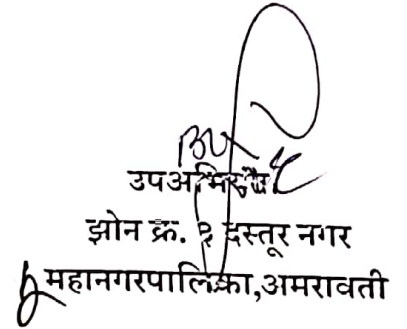 उपअभियंता
झोन क्र. ३ दस्तूर नगर
महानगरपालिका,अमरावती